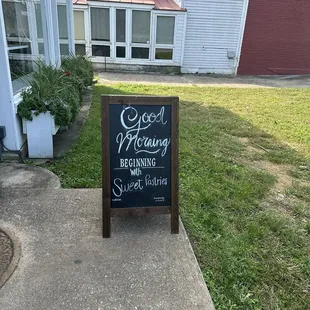 Good
Morning
BEGINNING
with
Sweet Pastries